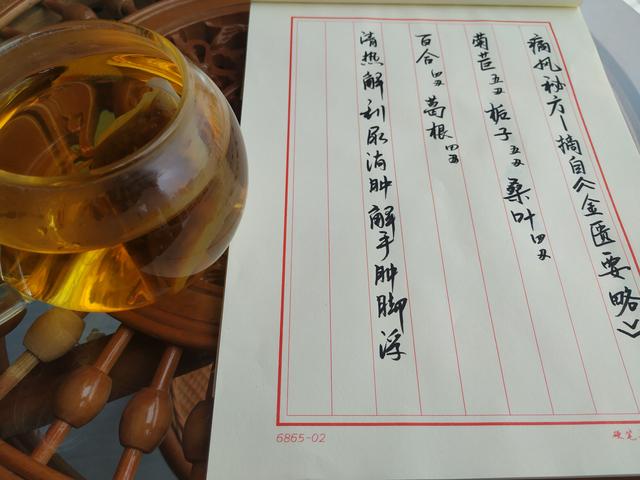 痛风秘方—摘自《金匮要略》
菊苣五克 栀子五克 桑叶四克
百合四克 葛根四克
清热解利尿消肿解手肿脚浮
6865-02
硬笔